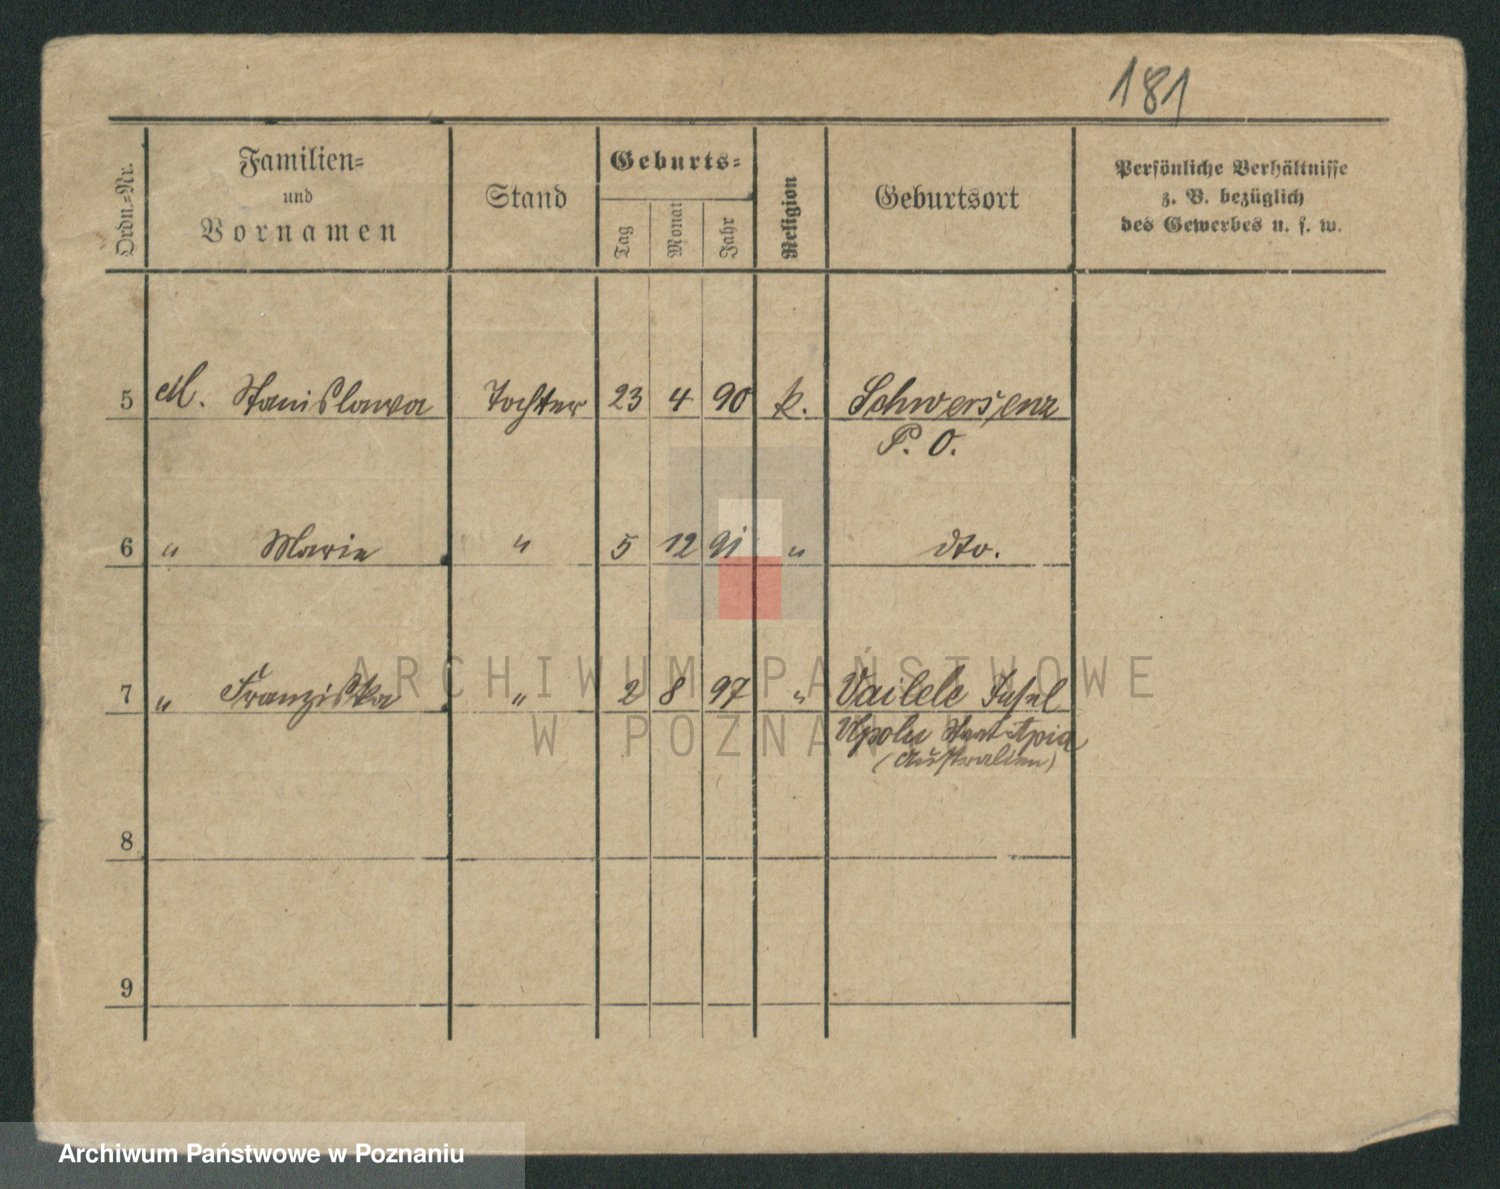 181
Ordn.-Nr.
Familien-
und
Vornamen
Stand
Geburts-
Tag
Monat
Jahr
Religion
Geburtsort
Persönliche Verhältnisse
z. B. bezüglich
des Gewerbes u. s. w.
5 M. Stanislawa Tochter 23 4 90 k. Schwersenz
P. O.
6 " Marie " 5 12 91 " dto.
7 " Franziska " 2 8 97 " Vailele Insel
Upolu Staat Apia
(Australien)
8
9
ARCHIWUM PAŃSTWOWE
W POZNANIU
Archiwum Państwowe w Poznaniu